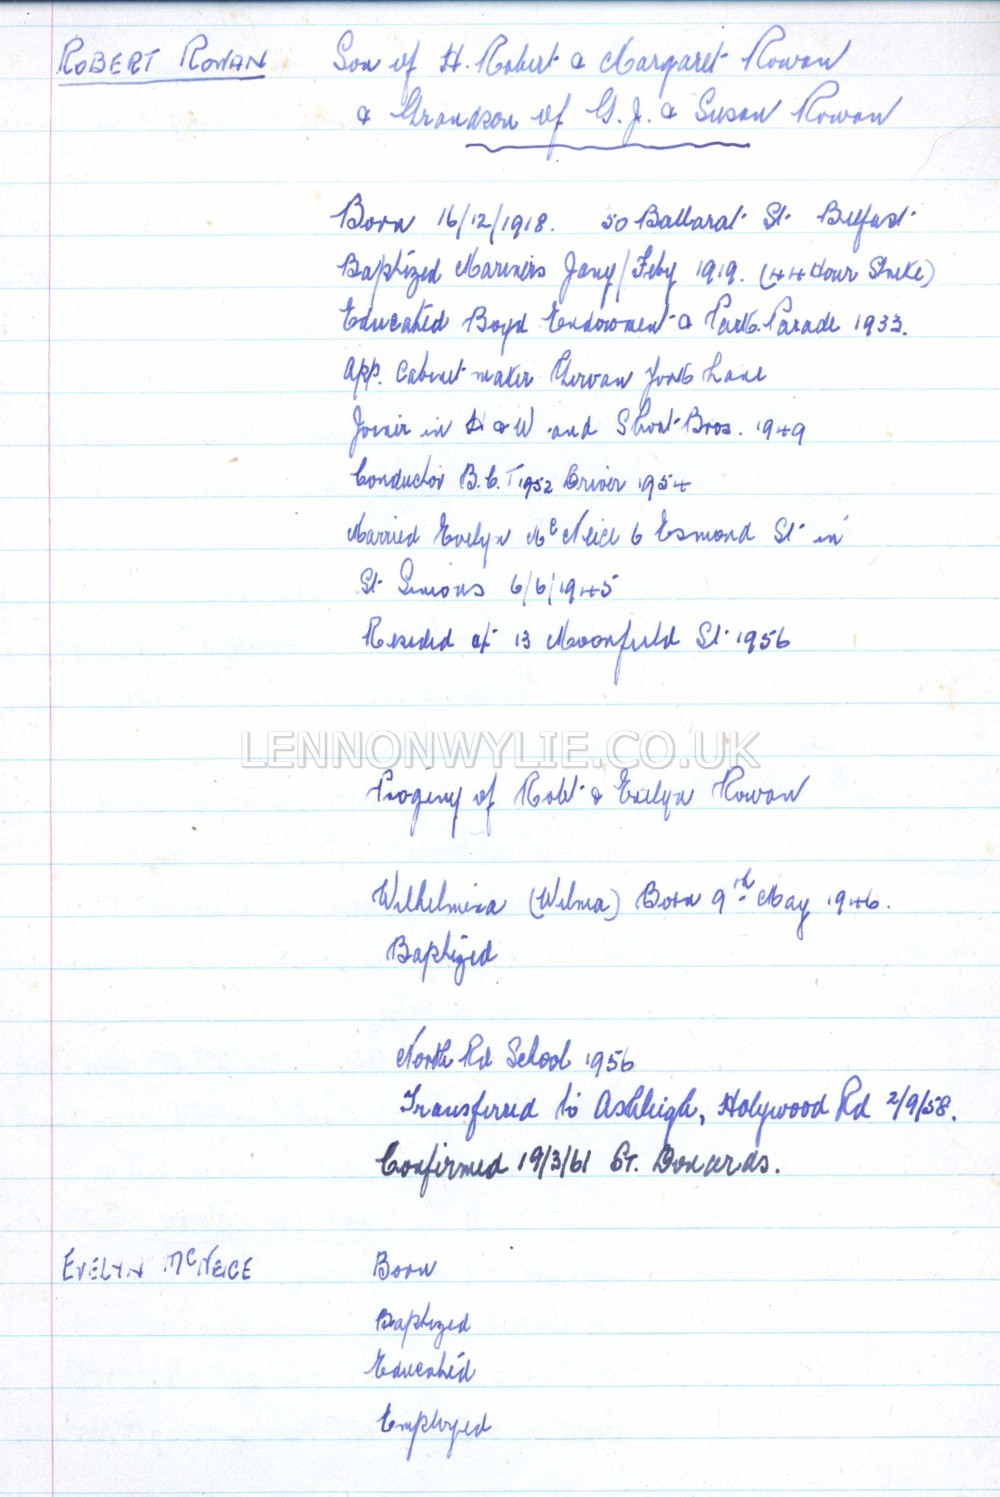 ROBERT ROWAN Son of H. Robert & Margaret Rowan
& Grandson of G. J. & Susan Rowan
Born 16/12/1918. 50 Ballarat St. Belfast
Baptized Mariners Jany/Feby 1919. (44 Hour Strike)
Educated Boyd Endowment & Park Parade 1933.
App. Cabinet maker York Lane
Joiner in H & W and Short Bros. 1949
Conductor B.C.T 1952 Driver 1954
Married Evelyn McNeice 6 Esmond St. in
St. Simons 6/6/1945
Resided at 13 Moorfield St. 1956
LENNONWYLIE.CO.UK
Progeny of Robt. & Evelyn Rowan
Wilhelmina (Wilma) Born 9th May 1946.
Baptized
North Rd School 1956
Transferred to Ashleigh, Holywood Rd 2/9/58.
Confirmed 19/3/61 St. Donards.
EVELYN McNEICE Born
Baptized
Educated
Employed